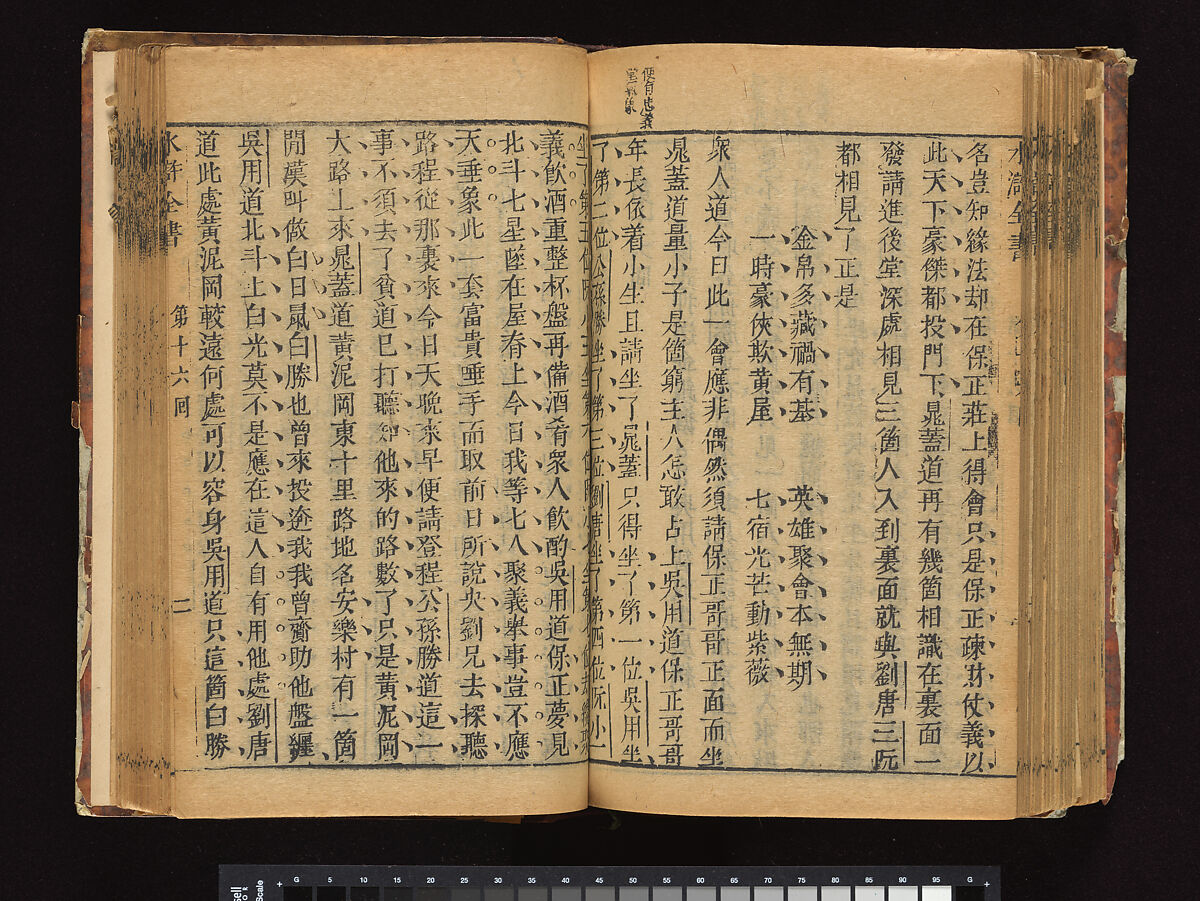 便有忠義
堂氣象
名豈知緣法却在保正莊上得會只是保正疎財仗義以
此天下豪傑都投門下晁蓋道再有幾箇相識在裏面一
發請進後堂深處相見三箇人入到裏面就與劉唐三阮
都相見了正是
金帛多藏禍有基 英雄聚會本無期
一時豪俠欺黃屋 七宿光芒動紫薇
衆人道今日此一會應非偶然須請保正哥哥正面而坐
晁蓋道量小子是箇窮主人怎敢占上吳用道保正哥哥
年長依着小生且請坐了晁蓋只得坐了第一位吳用坐
了第二位公孫勝坐了第三位劉唐坐了第四位阮小二
坐了第五位
義飲酒重整杯盤再備酒肴衆人飲酌吳用道保正夢見
北斗七星墜在屋脊上今日我等七人聚義舉事豈不應
天垂象此一套富貴唾手而取前日所說央劉兄去探聽
路程從那裏來今日天晚來早便請登程公孫勝道這一
事不須去了貧道已打聽知他來的路數了只是黃泥岡
大路上來晁蓋道黃泥岡東十里路地名安樂村有一箇
閒漢叫做白日鼠白勝也曾來投逩我我曾齎助他盤纏
吳用道北斗上白光莫不是應在這人自有用他處劉唐
道此處黃泥岡較遠何處可以容身吳用道只這箇白勝
水滸全書 第十六回 二